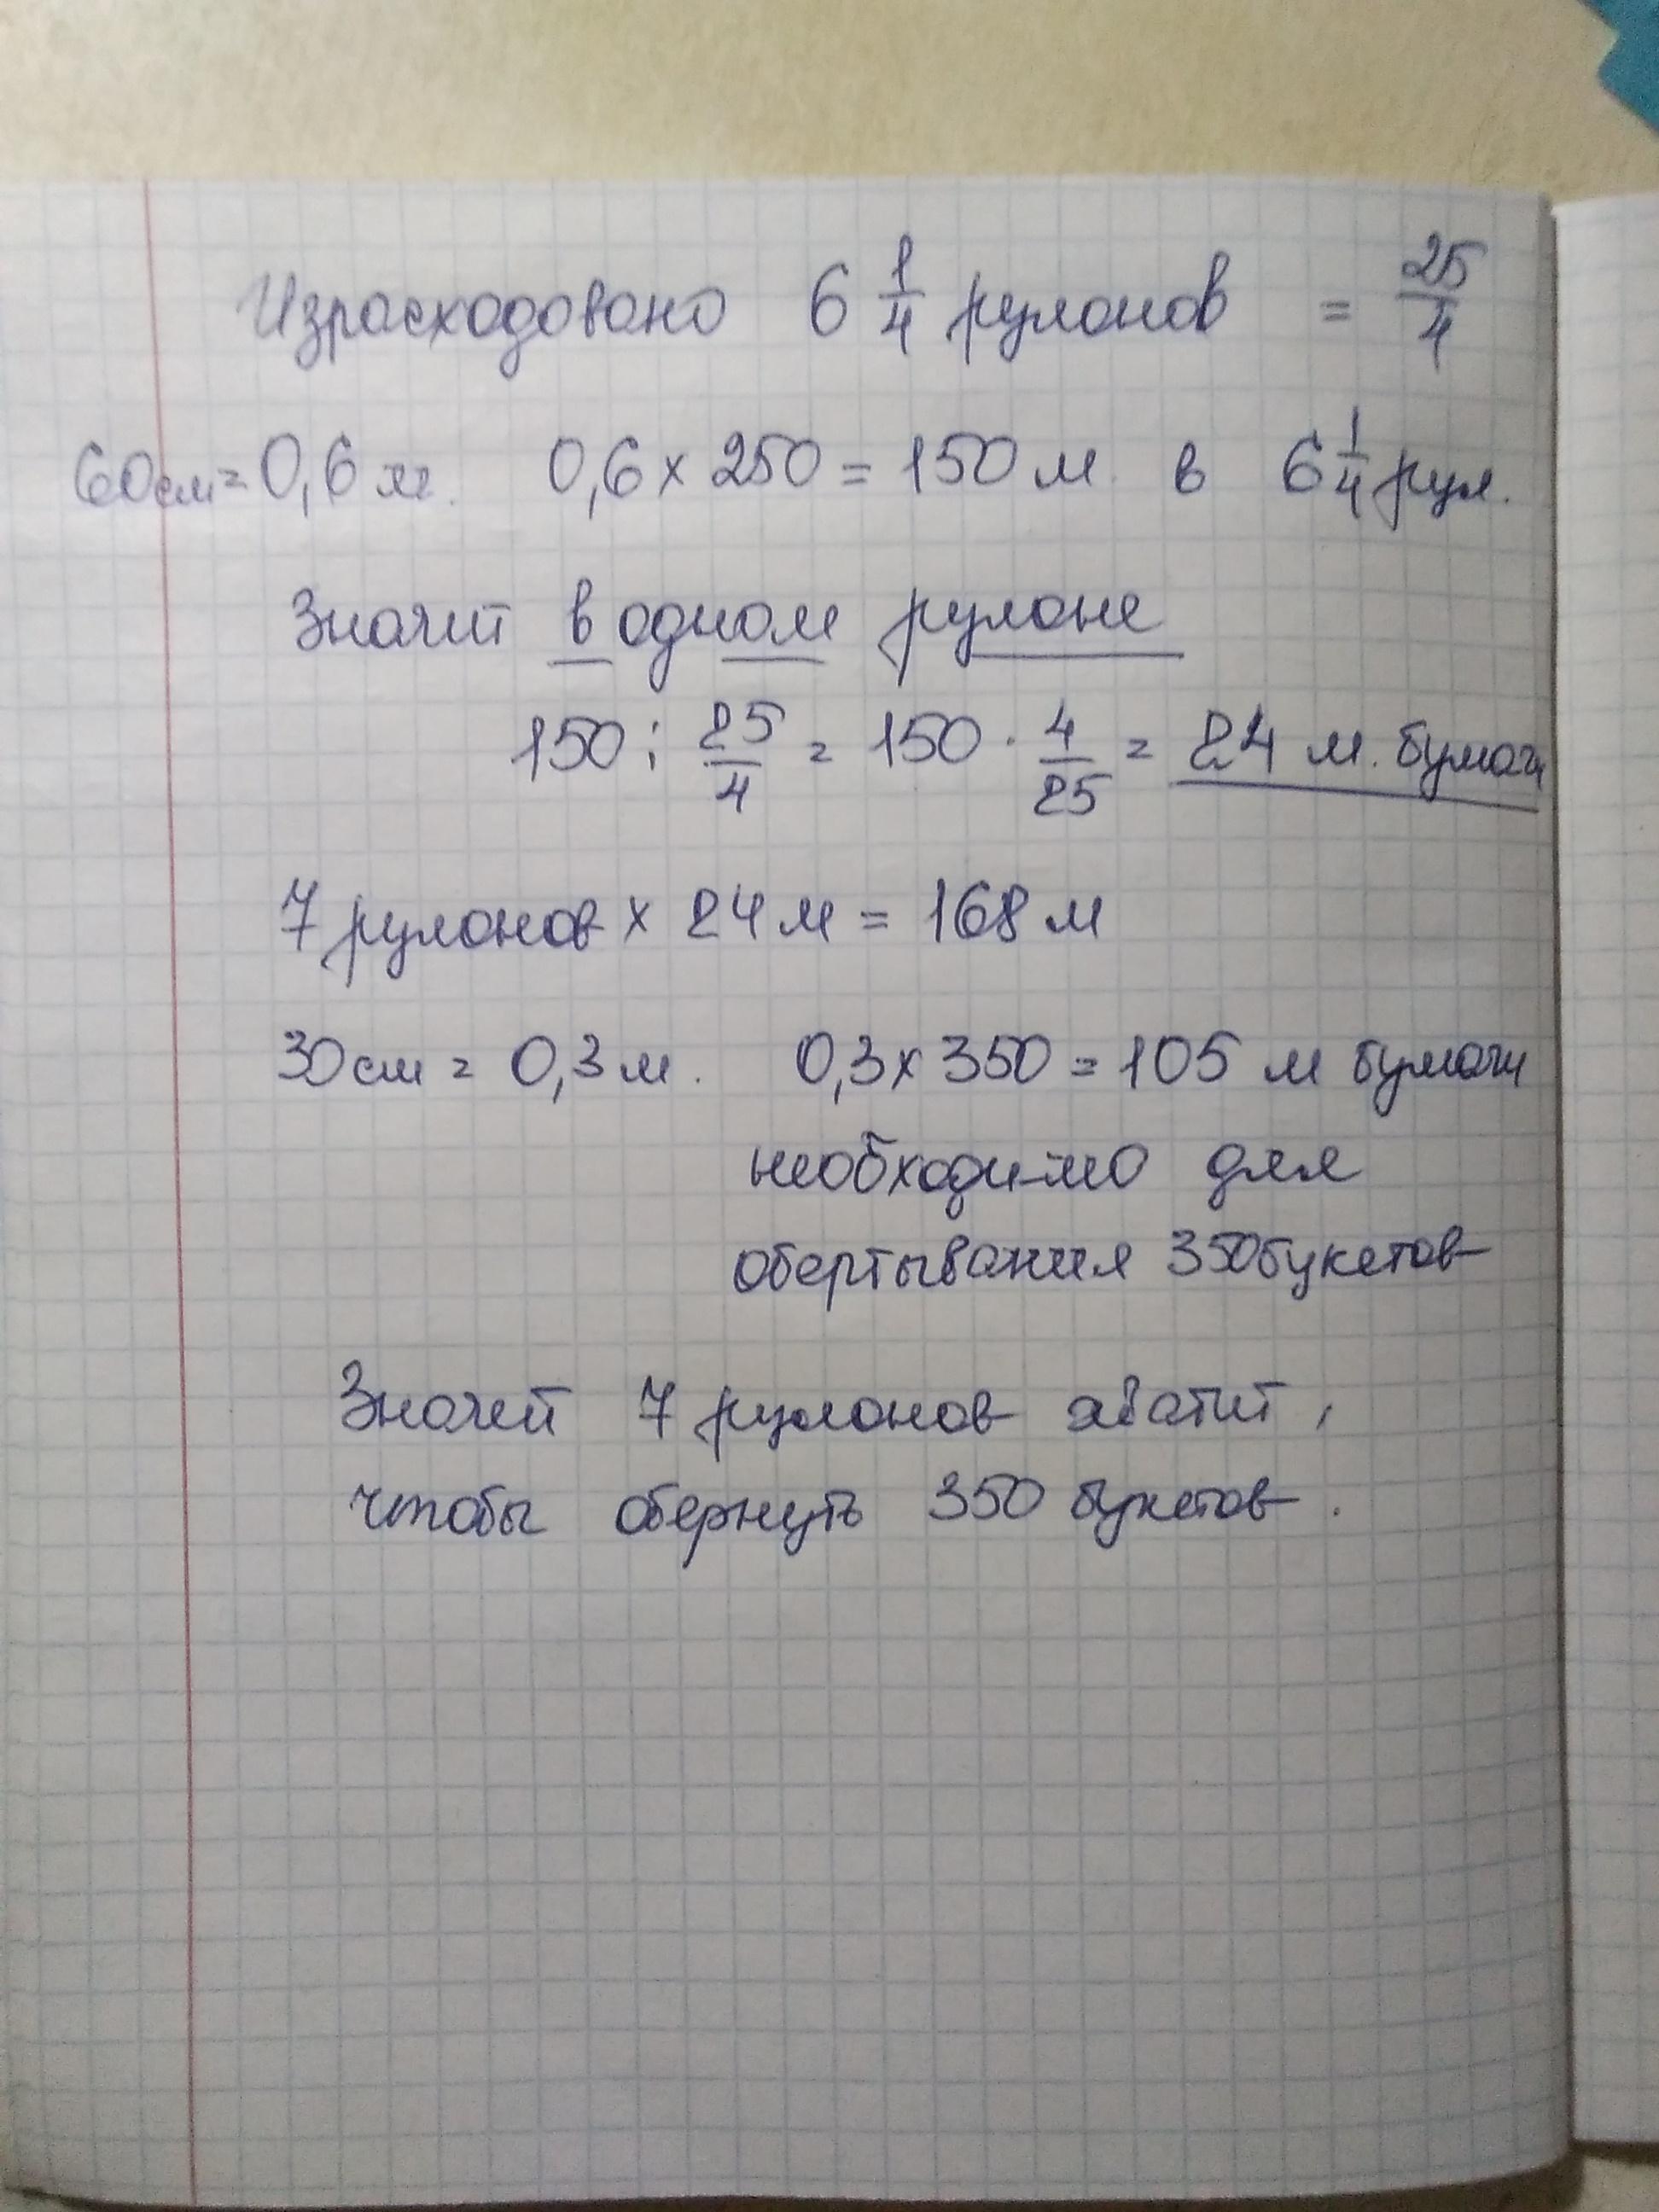 Израсходовано 6 1/4 рулонов = 25/4
60см = 0,6 м. 0,6 х 250 = 150 м в 6 1/4 рул.
Значит в одном рулоне
150 : 25/4 = 150 · 4/25 = 24 м. бумаги
7 рулонов х 24 м = 168 м
30 см = 0,3 м. 0,3 х 350 = 105 м бумаги
необходимо для
обертывания 350 букетов
Значит 7 рулонов хватит,
чтобы обернуть 350 букетов.